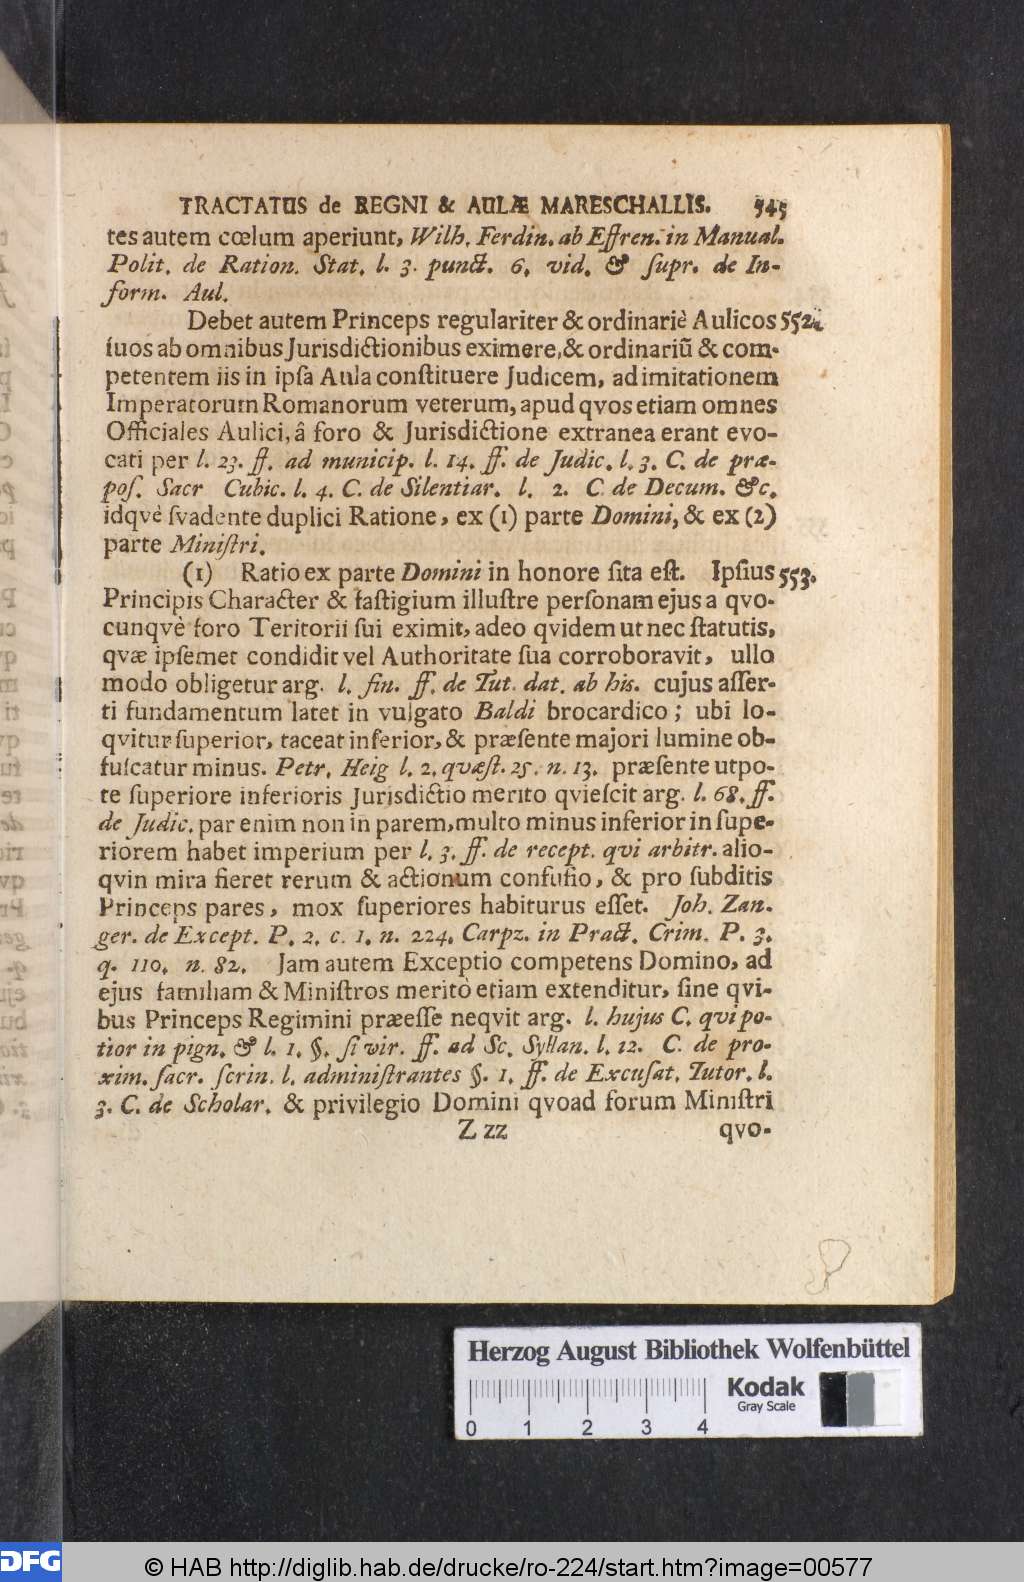 TRACTATUS de REGNI & AULÆ MARESCHALLIS. 545
tes autem cœlum aperiunt, Wilh. Ferdin. ab Effren. in Manual.
Polit. de Ration. Stat. l. 3. punct. 6. vid. & ſupr. de In-
form. Aul.
Debet autem Princeps regulariter & ordinariè Aulicos 552.
ſuos ab omnibus Jurisdictionibus eximere, & ordinariũ & com-
petentem iis in ipſa Aula conſtituere Judicem, ad imitationem
Imperatorum Romanorum veterum, apud qvos etiam omnes
Officiales Aulici, â foro & Jurisdictione extranea erant evo-
cati per l. 23. ff. ad municip. l. 14. ff. de Judic. l. 3. C. de præ-
poſ. Sacr Cubic. l. 4. C. de Silentiar. l. 2. C. de Decum. &c.
idqvè ſvadente duplici Ratione, ex (1) parte Domini, & ex (2)
parte Miniſtri.
(1) Ratio ex parte Domini in honore ſita eſt. Ipſius 553.
Principis Character & faſtigium illuſtre perſonam ejus a qvo-
cunqvè foro Teritorii ſui eximit, adeo qvidem ut nec ſtatutis,
qvæ ipſemet condidit vel Authoritate ſua corroboravit, ullo
modo obligetur arg. l. fin. ff. de Tut. dat. ab his. cujus aſſer-
ti fundamentum latet in vulgato Baldi brocardico; ubi lo-
qvitur ſuperior, taceat inferior, & præſente majori lumine ob-
fuſcatur minus. Petr. Heig l. 2. qvæſt. 25. n. 13. præſente utpo-
te ſuperiore inferioris Jurisdictio merito qvieſcit arg. l. 68. ff.
de Judic. par enim non in parem, multo minus inferior in ſupe-
riorem habet imperium per l. 3. ff. de recept. qvi arbitr. alio-
qvin mira fieret rerum & actionum confuſio, & pro ſubditis
Princeps pares, mox ſuperiores habiturus eſſet. Joh. Zan-
ger. de Except. P. 2. c. 1. n. 224. Carpz. in Pract. Crim. P. 3.
q. 110. n. 82. Jam autem Exceptio competens Domino, ad
ejus familiam & Miniſtros meritò etiam extenditur, ſine qvi-
bus Princeps Regimini præeſſe neqvit arg. l. hujus C. qvi po-
tior in pign. & l. 1. §. ſi vir. ff. ad Sc. Syllan. l. 12. C. de pro-
xim. ſacr. ſcrin. l. adminiſtrantes §. 1. ff. de Excuſat. Tutor. l.
3. C. de Scholar. & privilegio Domini qvoad forum Miniſtri
Z zz qvo-
Herzog August Bibliothek Wolfenbüttel
Kodak
Gray Scale
0 1 2 3 4
DFG © HAB http://diglib.hab.de/drucke/ro-224/start.htm?image=00577